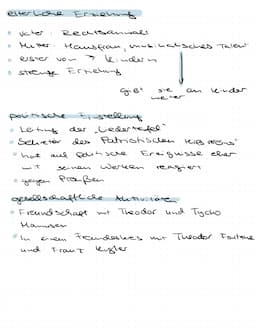 elterliche Erziehung
• Vater: Rechtsanwalt
• Mutter Hausfrau, musikalisches Talent
• erster von 7 Kindern
• strenge Erziehung
gibt sie an Kinder
weiter
politische Einstellung
• Leitung der „Liedertafel"
• des Patriotischen
• hat auf politische Ereignisse eher
mit seinen Werken reagiert
• gegen Preußen
gesellschaftliche Aktivitäten
• Freundschaft mit Theodor und Tycho
Mommsen
• In einem Freundeskreis mit Theodor Fontane
und Franz Kugler